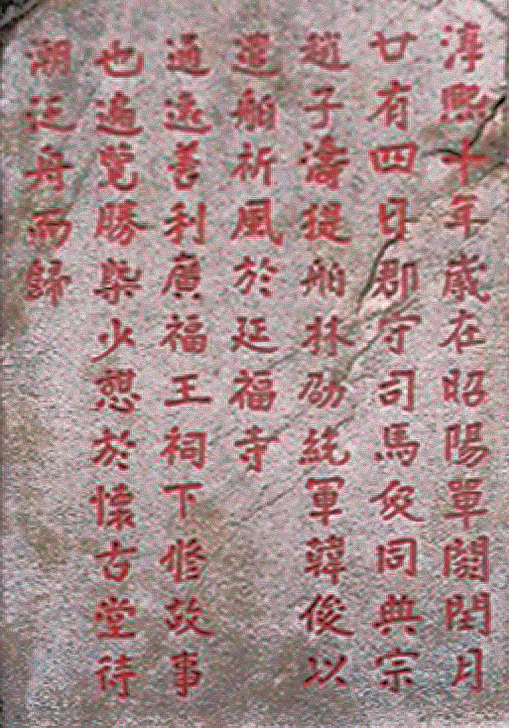 淳熙十年歲在昭陽單閼閏月
廿有四日郡守司馬伋同典宗
趙子濤提舶林劭統軍韓俊以
遣舶祈風於延福寺
通遠善利廣福王祠下脩故事
也遍覽勝槩少憇於懷古堂待
潮泛舟而歸